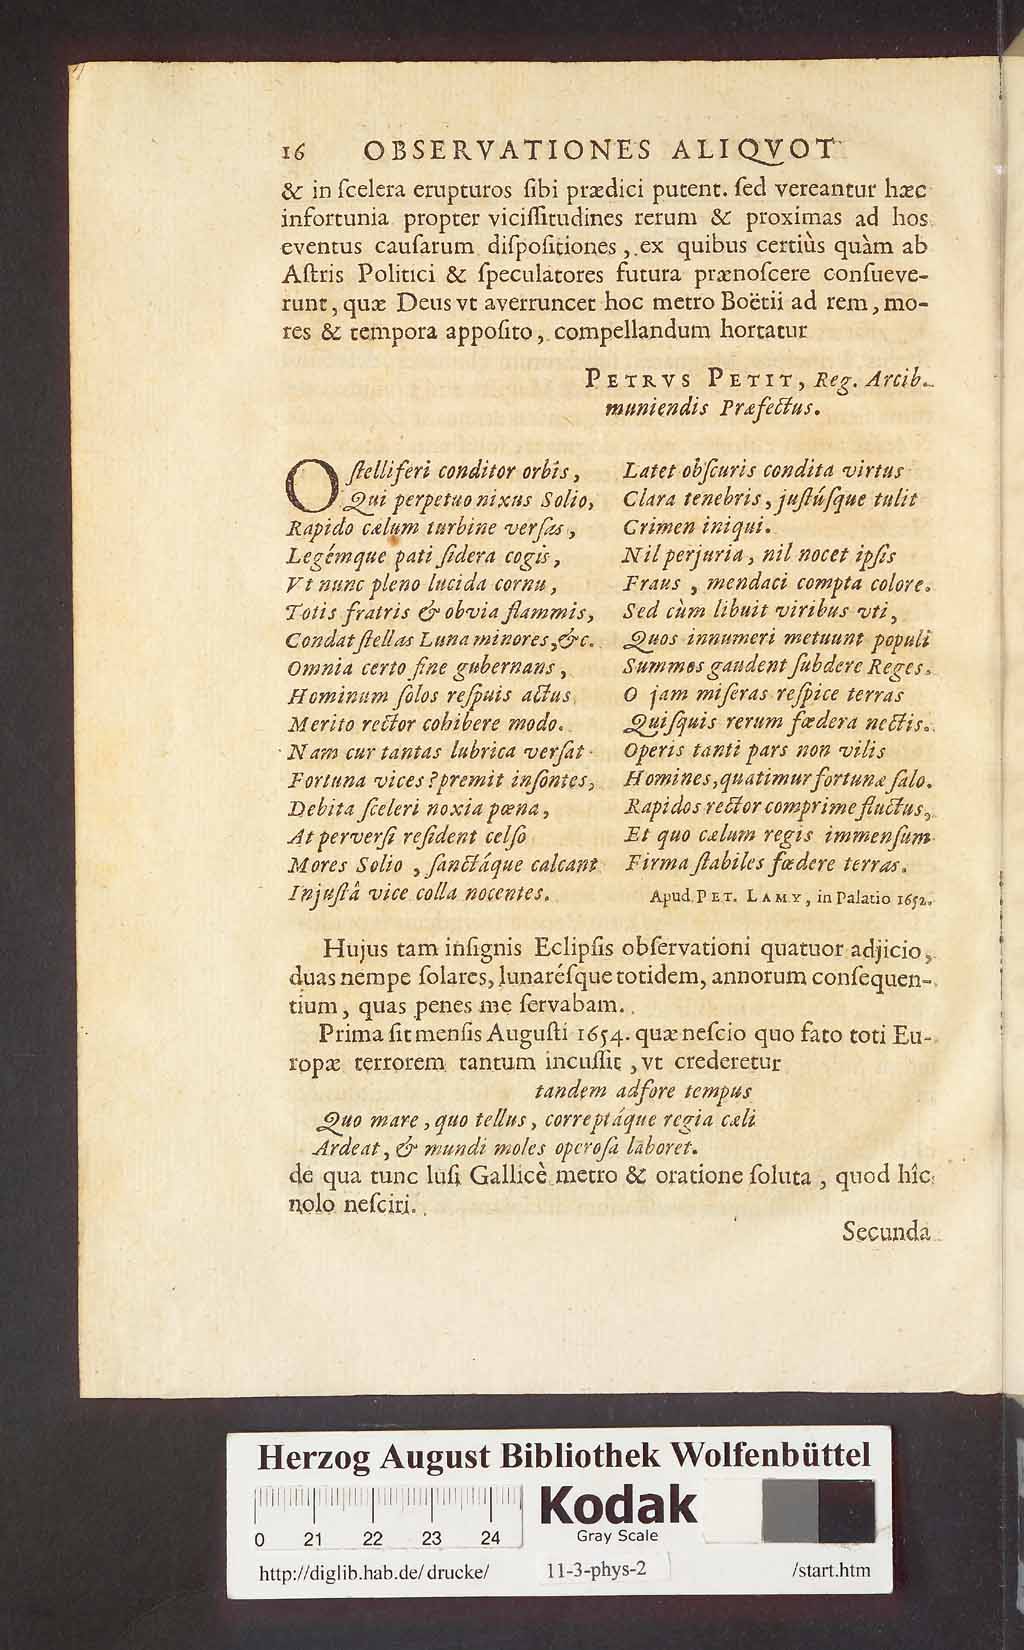 16 OBSERVATIONES ALIQVOT
& in ſcelera erupturos ſibi prædici putent. ſed vereantur hæc
infortunia propter viciſſitudines rerum & proximas ad hos
eventus cauſarum diſpoſitiones, ex quibus certiùs quàm ab
Aſtris Politici & ſpeculatores futura prænoſcere conſueve-
runt, quæ Deus vt averruncet hoc metro Boëtii ad rem, mo-
res & tempora appoſito, compellandum hortatur
PETRVS PETIT, Reg. Arcib.
muniendis Præfectus.
O ſtelliferi conditor orbis,
Qui perpetuo nixus Solio,
Rapido cælum turbine verſas,
Legémque pati ſidera cogis,
Vt nunc pleno lucida cornu,
Totis fratris & obvia flammis,
Condat ſtellas Luna minores, &c.
Omnia certo fine gubernans,
Hominum ſolos reſpuis actus
Merito rector cohibere modo.
Nam cur tantas lubrica verſat
Fortuna vices? premit inſontes,
Debita ſceleri noxia pœna,
At perverſi reſident celſo
Mores Solio, ſanctáque calcant
Injuſtâ vice colla nocentes.
Latet obſcuris condita virtus
Clara tenebris, juſtúſque tulit
Crimen iniqui.
Nil perjuria, nil nocet ipſis
Fraus, mendaci compta colore.
Sed cùm libuit viribus vti,
Quos innumeri metuunt populi
Summos gaudent ſubdere Reges.
O jam miſeras reſpice terras
Quiſquis rerum fœdera nectis.
Operis tanti pars non vilis
Homines, quatimur fortunæ ſalo.
Rapidos rector comprime fluctus,
Et quo cælum regis immenſum
Firma ſtabiles fœdere terras.
Apud PET. LAMY, in Palatio 1652.
Hujus tam inſignis Eclipſis obſervationi quatuor adjicio,
duas nempe ſolares, lunaréſque totidem, annorum conſequen-
tium, quas penes me ſervabam.
Prima ſit menſis Auguſti 1654. quæ neſcio quo fato toti Eu-
ropæ terrorem tantum incuſſit, vt crederetur
tandem adfore tempus
Quo mare, quo tellus, correptáque regia cæli
Ardeat, & mundi moles operoſa laboret.
de qua tunc luſi Gallicè metro & oratione ſoluta, quod hîc
nolo neſciri.
Secunda
Herzog August Bibliothek Wolfenbüttel
0 21 22 23 24
Kodak
Gray Scale
http://diglib.hab.de/drucke/ 11-3-phys-2 /start.htm